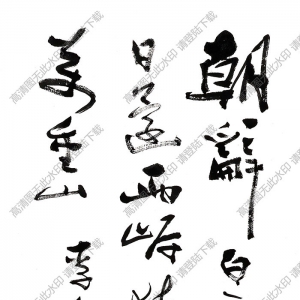 朝辭白
日還两岸
萬重山 李
高清图无此水印 请登陆下载